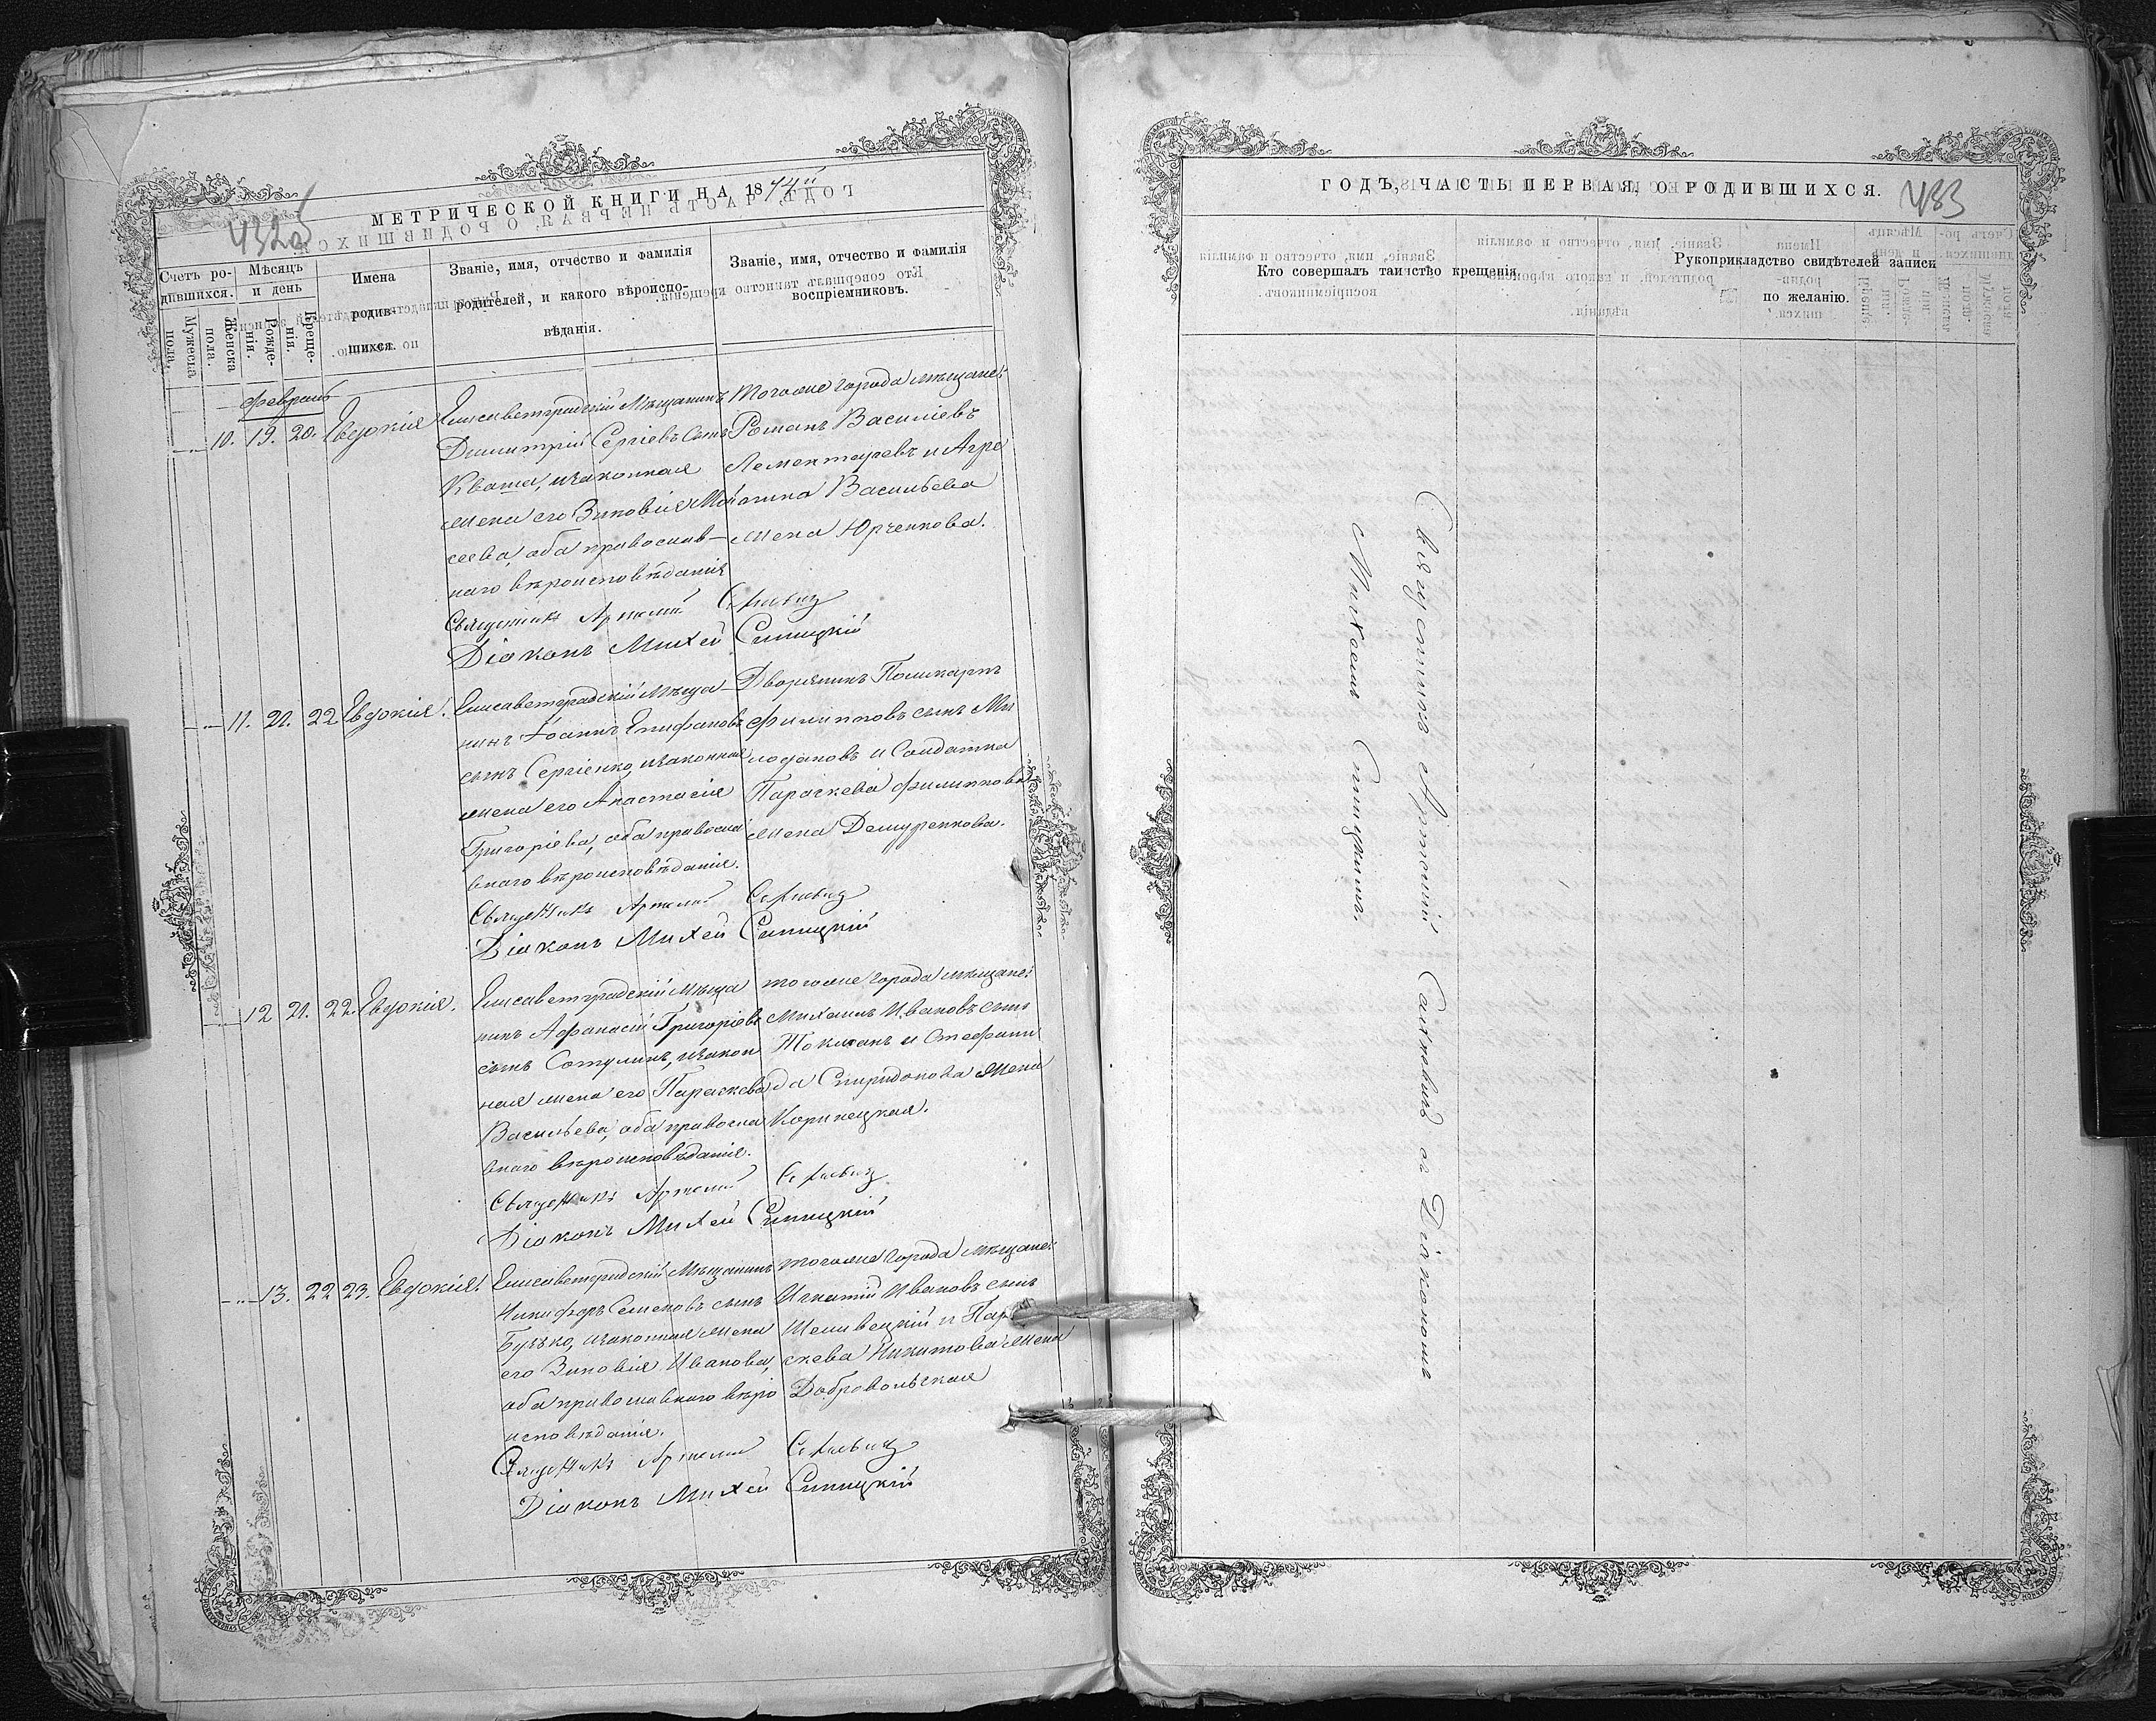 МЕТРИЧЕСКОЙ КНИГИ НА 1874й
432об
Счетъ ро-
дившихся.
Мужеска
пола.
Женска
пола.
Мѣсяцъ
и день
Рожде-
нія.
Креще-
нія.
Имена
родив-
шихся.
Званіе, имя, отчество и фамилія
родителей, и какого вѣроиспо-
вѣданія.
Званіе, имя, отчество и фамилія
воспріемниковъ.
Февраль
10. 19. 20. Евдокія
Елисаветградскій Мѣщанинъ
Димитрій Сергіевъ сынъ
Кваша, изаконная
жена его Зиновія
сеева, оба православ-
наго вѣроисповѣданія
Тогоже города мѣщане:
Романъ Василіевъ
и Агре
пина Васильева
жена Юрченкова.
Священикъ Артемій
Діаконъ Михей Спицкій
11. 21. 22. Евдокія.
Елисаветградскій Мѣща-
нинъ Іоаннъ Епифановъ
сынъ Сергіенко, изаконная
жена его Анастасія
Григоріева, оба правосла
внаго вѣроисповѣданія.
Дворянинъ Поликарпъ
Филипповъ сынъ Ми
лодановъ и Солдатка
Параскева Филиппова
жена Демуренкова.
Священикъ Артемій
Діаконъ Михей Спицкій
12 21. 22. Евдокія.
Елисаветградскій Мѣща
нинъ Афанасій Григоріевъ
сынъ Сотулинъ, изакон
ная жена его Параскева
Васильева, оба правосла
внаго вѣроисповѣданія.
тогоже города мѣщане:
Михаилъ Ивановъ сынъ
Токманъ и Стефани
да Спиридонова жена
Коринецкая.
Священикъ Артемій
Діаконъ Михей Спицкій
13. 22 23. Евдокія.
Елисаветградскій Мѣщанинъ
Никифоръ Семеновъ сынъ
Бузько, изаконная жена
его Зиновія Иванова,
оба православнаго вѣро
исповѣданія.
тогоже города мѣщане:
Игнатій Ивановъ сынъ
Шеливецкій и Пар
скева Никитова жена
Добровольская
Священикъ Артемій
Діаконъ Михей Спицкій
ГОДЪ, ЧАСТЬ ПЕРВАЯ, О РОДИВШИХСЯ.
433
Кто совершалъ таинство крещенія.
Рукоприкладство свидѣтелей записи
по желанію.
Священникъ Артемій
съ Діакономъ
Михеемъ Спицкимъ.